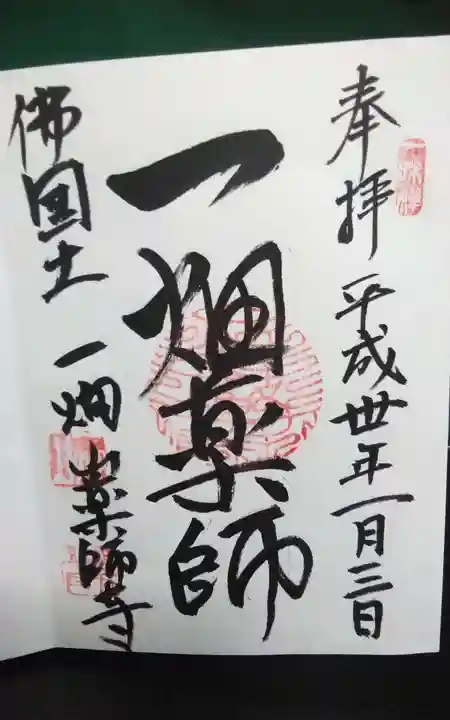 奉拝 平成卅年一月三日
一畑薬師
佛国土 一畑山薬師寺